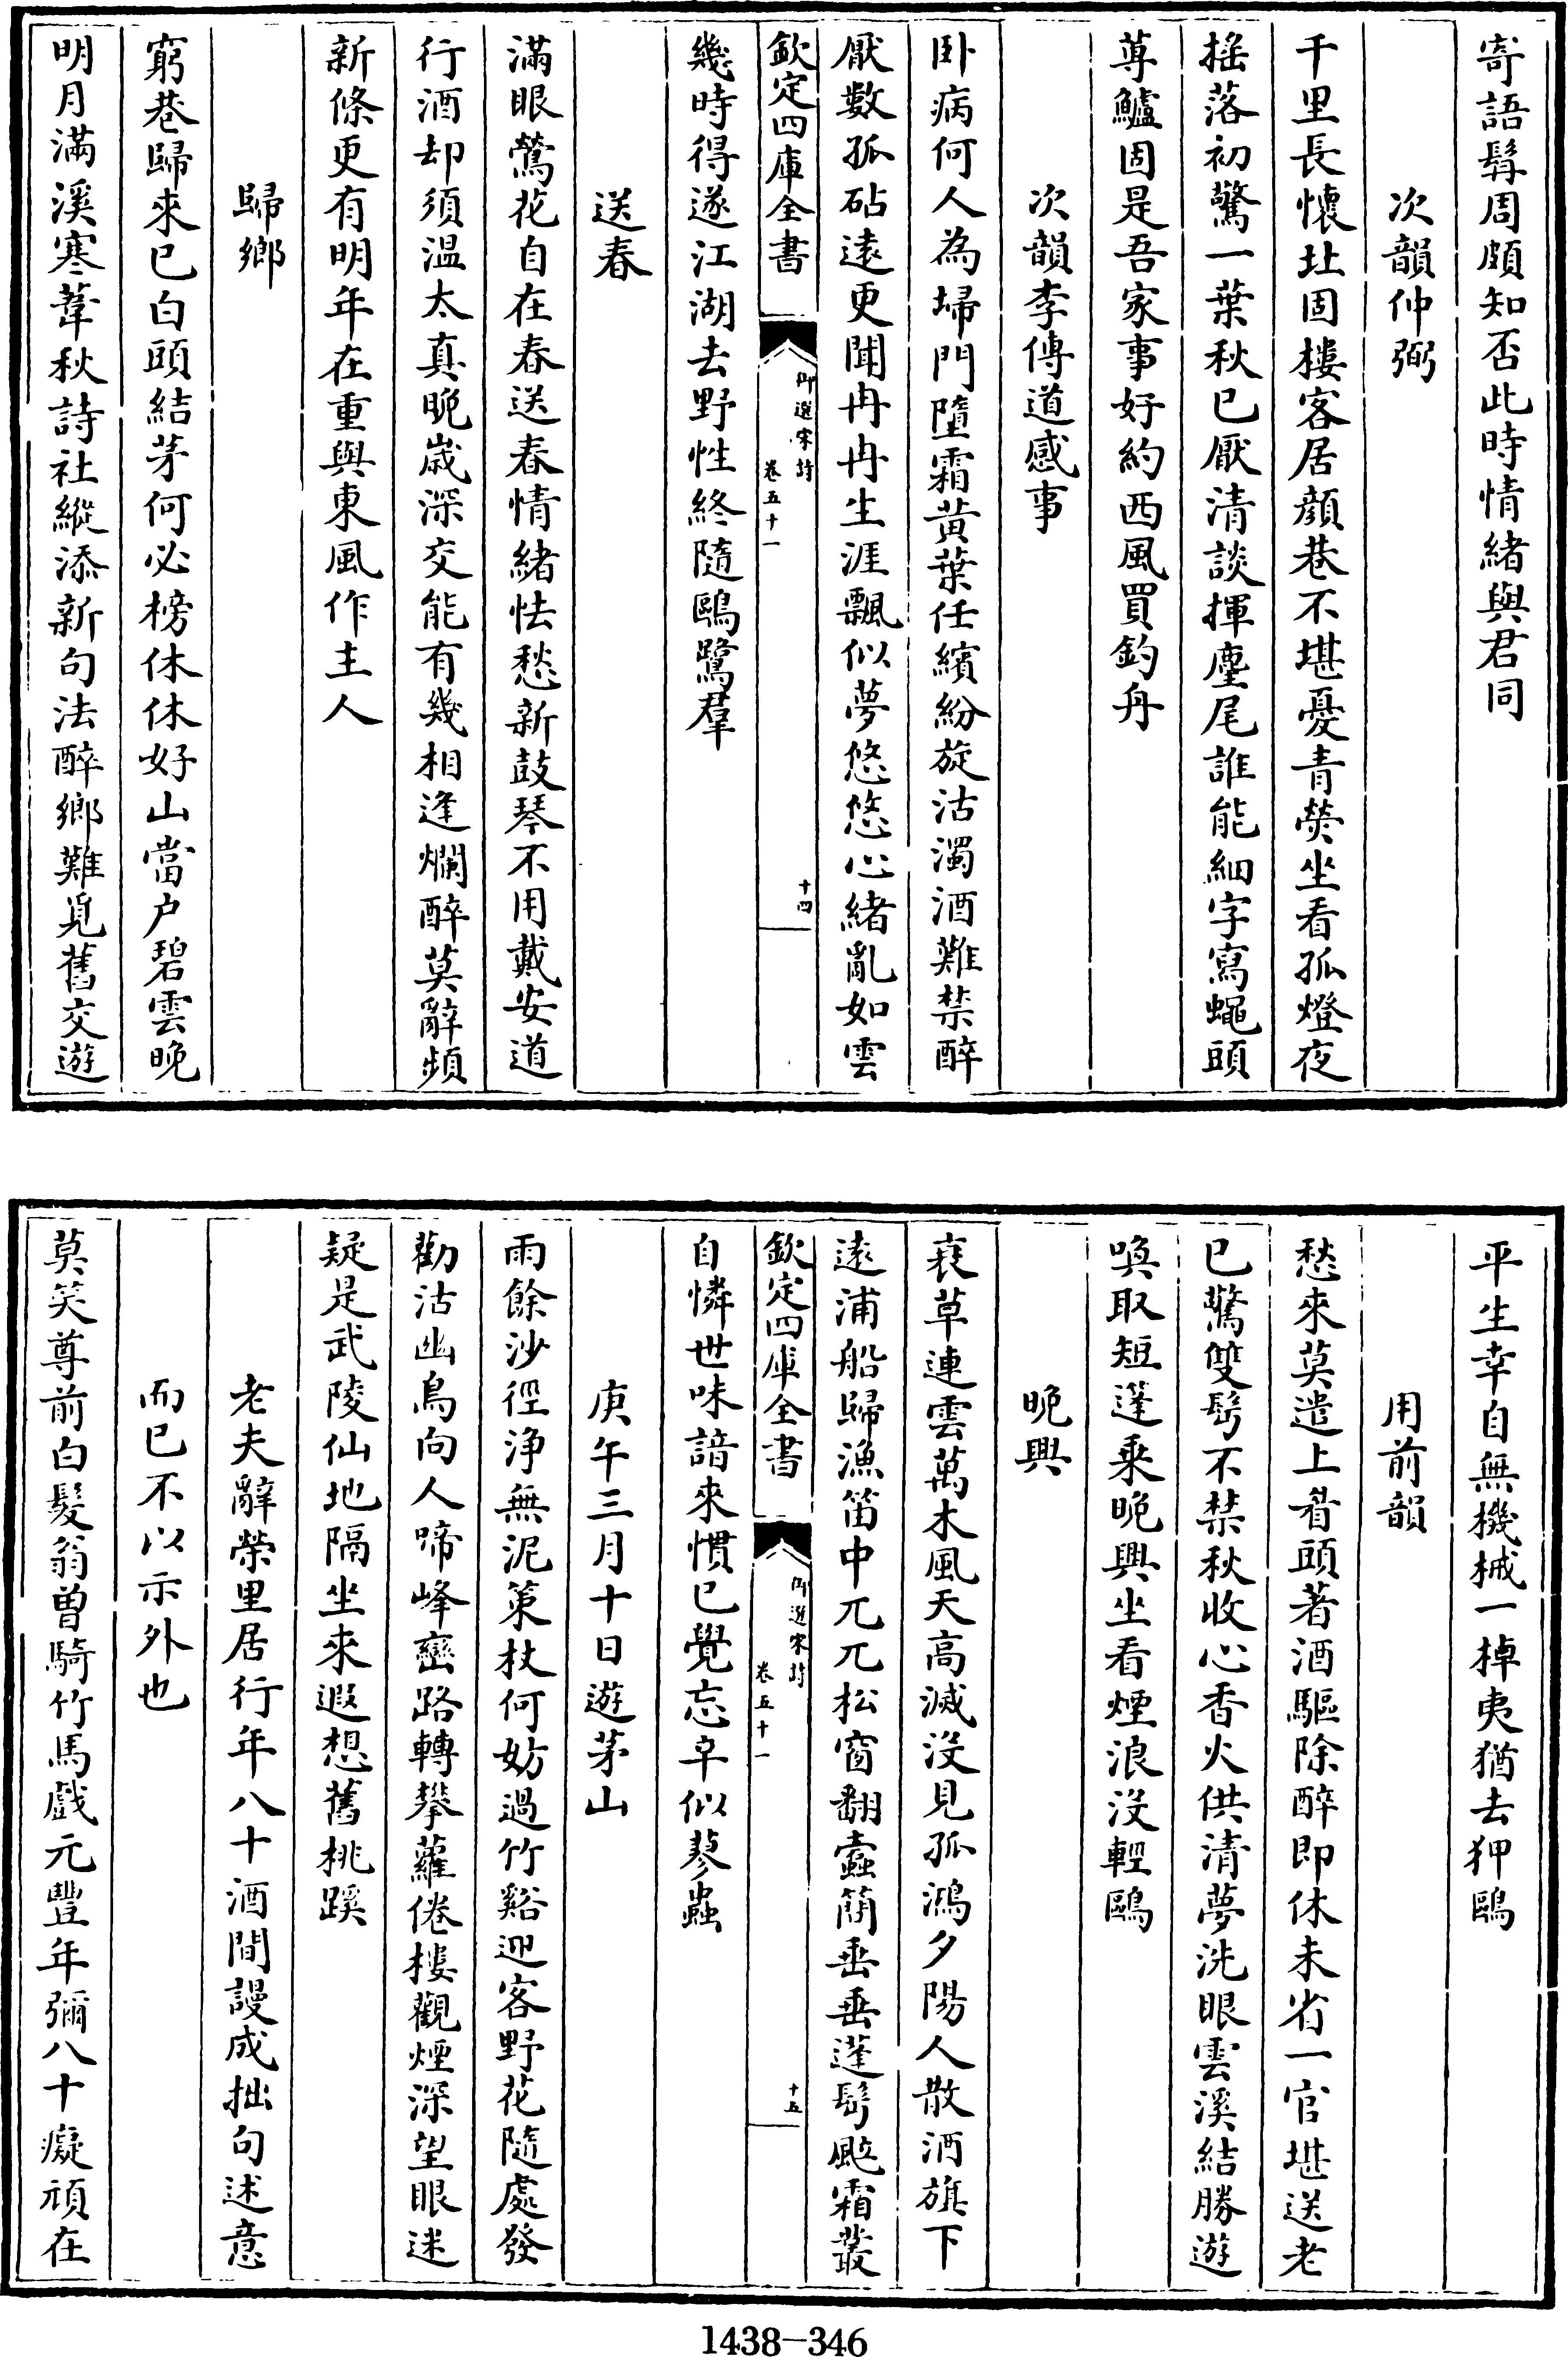 寄語髯周頗知否此時情緒與君同
次韻仲弼
千里長懷圯固樓客居顔巷不堪憂青熒坐看孤燈夜
揺落初驚一葉秋已厭清談揮麈尾誰能細字寫蠅頭
蓴鱸固是吾家事好約西風買釣舟
次韻李傅道感事
卧病何人為埽門墮霜黄葉任繽紛旋沽濁酒難禁醉
厭數孤砧逺更聞冉冉生涯飄似夢悠悠心緒亂如雲
欽定四庫全書
御選宋詩
卷五十一
十四
幾時得遂江湖去野性終隨鷗鷺羣
送春
滿眼鶯花自在春送春情緒怯愁新鼓琴不用戴安道
行酒却須温太真晚歲深交能有幾相逢爛醉莫辭頻
新條更有明年在重與東風作主人
歸鄉
窮巷歸來已白頭結茅何必榜休休好山當户碧雲晚
明月滿溪寒葦秋詩社縱添新句法醉鄉難覓舊交遊
平生幸自無機械一掉夷猶去狎鷗
用前韻
愁來莫遣上眉頭著酒驅除醉即休未省一官堪送老
已驚雙鬂不禁秋收心香火供清夢洗眼雲溪結勝遊
喚取短篷乘晚興坐看煙浪没輕鷗
晚興
衰草連雲萬木風天高滅没見孤鴻夕陽人散酒旗下
逺浦船歸漁笛中兀兀松窗翻蠹簡垂垂蓬鬂颭霜叢
欽定四庫全書
御選宋詩
卷五十一
十五
自憐世味諳來慣已覺忘辛似蓼蟲
庚午三月十日遊茅山
雨餘沙徑浄無泥策杖何妨過竹谿迎客野花隨處發
勸沽幽鳥向人啼峰巒路轉攀蘿倦樓觀煙深望眼迷
疑是武陵仙地隔坐來遐想舊桃蹊
老夫辭榮里居行年八十酒間謾成拙句述意
而已不以示外也
莫笑尊前白髮翁曽騎竹馬戲元豐年彌八十癡頑在
1438-346